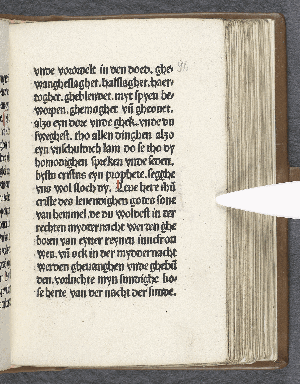 vnde vorordelt in den doed. ghe
wangheslaghet. halslaghet. haer
toghet. gheblendet. myt spyen be
worpen. ghemaghet vn̄ gheonet.
alzo eyn dore vnde gheck. vnde du
sweghest. tho allen dinghen alzo
eyn vnschuldich lam do se tho dy
homodighen spreken vnde seden.
bystu cristus eyn prophete. segghe
vns wol sloch dy. Leve here ihū
criste des levendighen godes sone
van hemmel. de du woldest in der
rechten myddernacht werden ghe
boren van eyner reynen iuncfrou
wen. vn̄ ock in der myddernacht
werden ghevanghen vnde ghebū
den. vorluchte myn sundighe bo
se herte van der nacht der sunde.